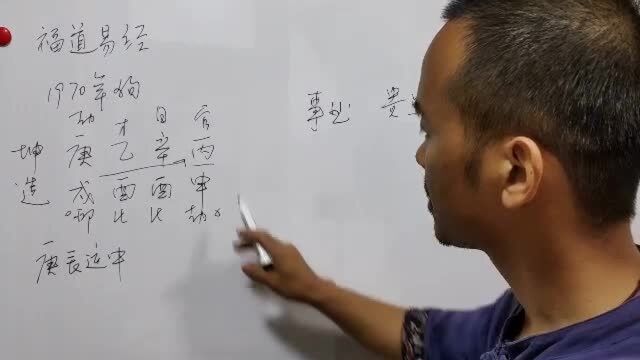 福道易经
1970年狗
劫 才 日 官
坤 庚 乙 辛 丙
造 戌 酉 酉 申
印 比 比 劫
庚辰运中
事业 贵